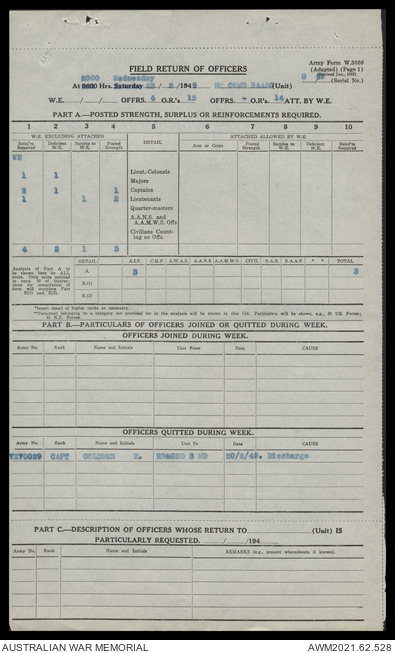 Army Form W.3008
(Adapted) (Page 1)
(Revised Jan., 1945)
(Serial No.)
FIELD RETURN OF OFFICERS
2000 Wednesday
At Hrs. Saturday 23 / 2 / 1949 (Unit)
W.E. / / OFFRS. 4 O.R's 15 OFFRS. - O.R's. 14 ATT. BY W.E.
PART A.—POSTED STRENGTH, SURPLUS OR REINFORCEMENTS REQUIRED.
1 2 3 4 5 6 7 8 9 10
W.E. EXCLUDING ATTACHED DETAIL ATTACHED ALLOWED BY W.E.
Reinf'ts Required Deficient W.E. Surplus to W.E. Posted Strength Arm or Corps Posted Strength Surplus to W.E. Deficient W.E. Reinf'ts Required
WE
1 1 Lieut.-Colonels
Majors
2 1 1 Captains
1 1 2 Lieutenants
Quarter-masters
A.A.N.S. and
A.A.M.W.S. Offs.
Civilians Count-
ing as Offs.
4 2 1 3
Analysis of Part A to be shown here by ALL units.
DETAIL A.I.F. C.M.F. A.W.A.S. A.A.N.S. A.A.M.W.S. CIVIL R.A.N. R.A.A.F. * * TOTAL
A. 3 3
E.(1)
E.(2)
*Insert detail of higher ranks as necessary.
**Personnel belonging to a category not provided for in the analysis will be shown in this Col. Particulars will be shown, e.g., 20 UK Forces;
10 N.Z. Forces.
PART B.—PARTICULARS OF OFFICERS JOINED OR QUITTED DURING WEEK.
OFFICERS JOINED DURING WEEK.
Army No. Rank Name and Initials Unit From Date CAUSE
OFFICERS QUITTED DURING WEEK.
Army No. Rank Name and Initials Unit To Date CAUSE
VX70029 CAPT R. 20/2/49. Discharge
PART C.—DESCRIPTION OF OFFICERS WHOSE RETURN TO (Unit) IS
PARTICULARLY REQUESTED. / /194
Army No. Rank Name and Initials REMARKS (e.g., present whereabouts if known).
AUSTRALIAN WAR MEMORIAL AWM2021.62.528